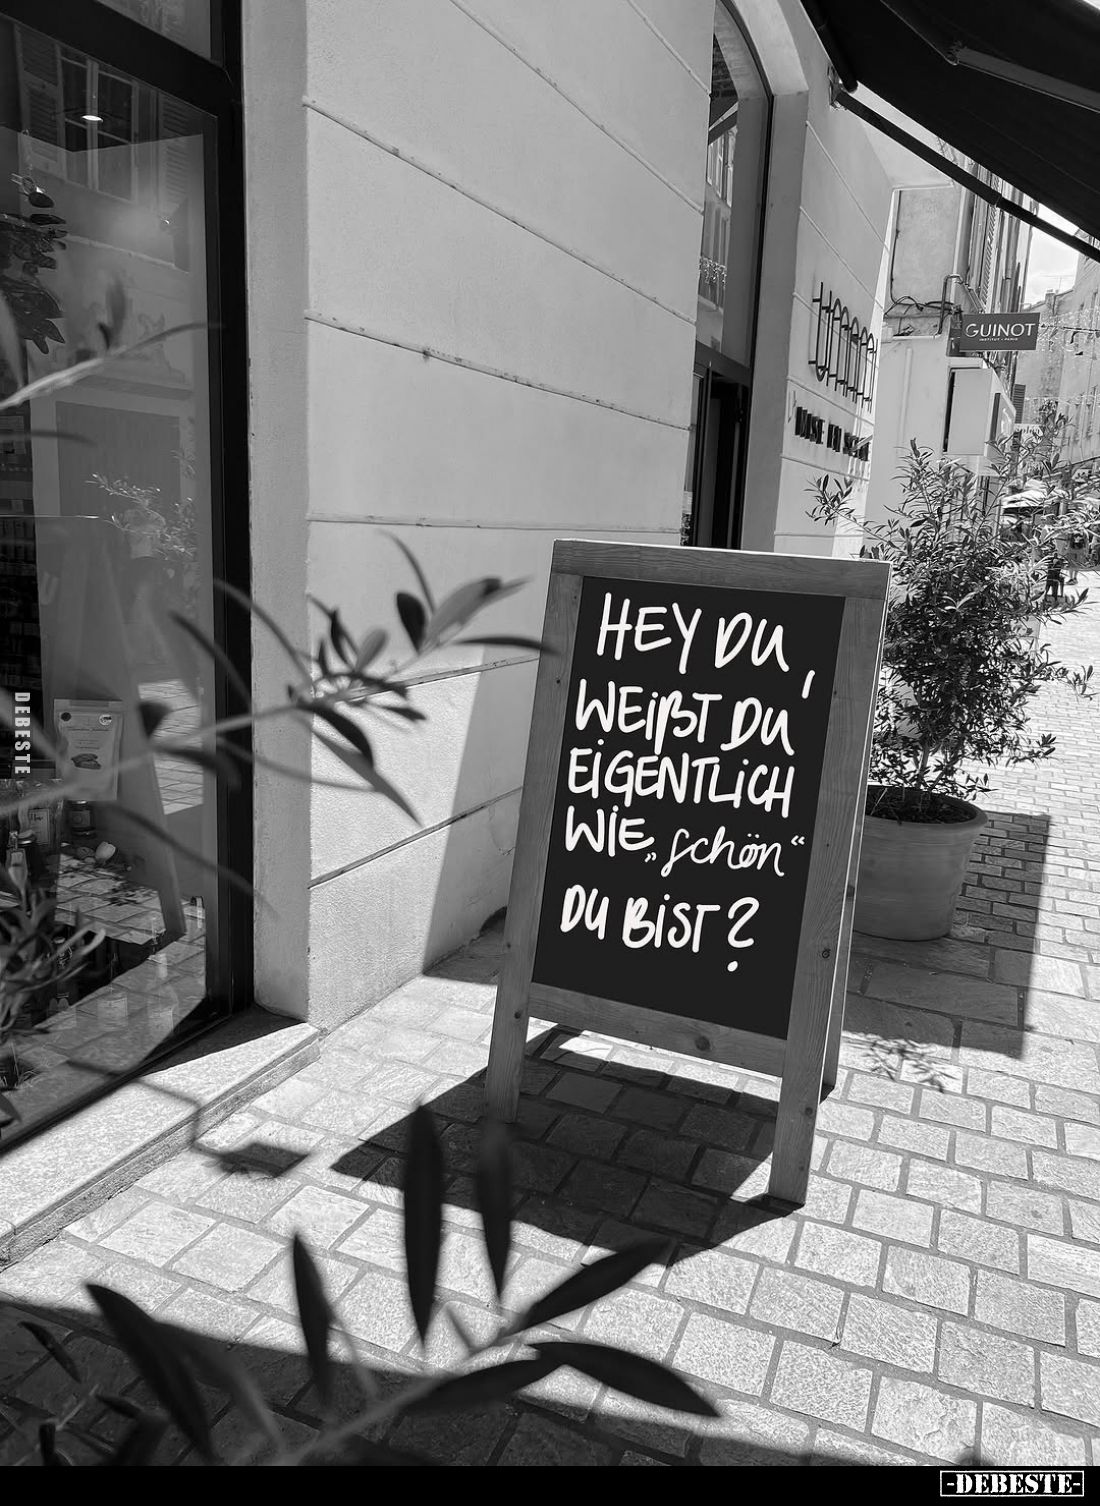 GUINOT
INSTITUT • PARIS
HEY DU,
WEIßT DU
EIGENTLICH
WIE „schön“
DU BIST?
DEBESTE
-DEBESTE-